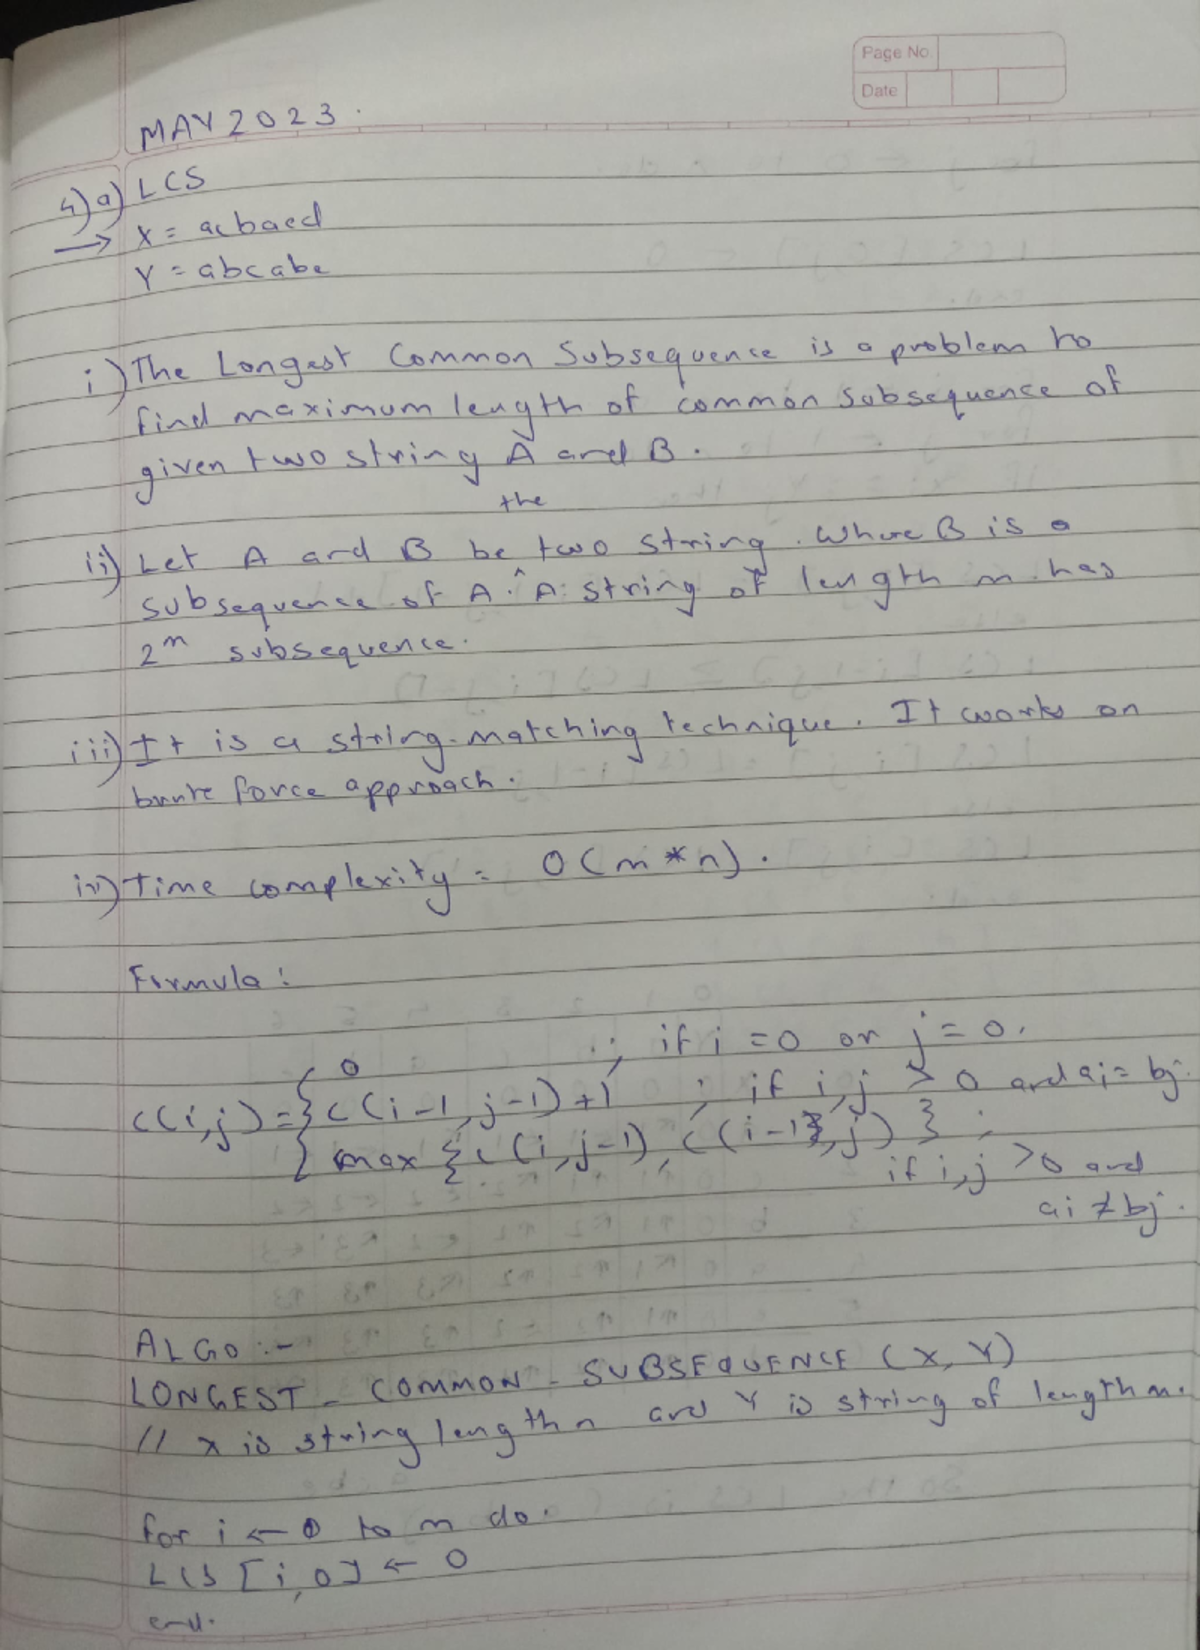 Page No.
Date
MAY 2023.
4) a) LCS
→ X = acbaed
Y = abcabe
i) The Longest Common Subsequence is a problem to
find maximum length of common subsequence of
given two string A and B.
the
ii) Let A and B be two string. Where B is a
subsequence of A. ^ A string of length m has
2^m subsequence.
iii) It is a string-matching technique. It works on
brute force approach.
iv) Time complexity = O(m*n).
Formula:
0 ; if i = 0 or j = 0.
c(i,j) = { c(i-1, j-1) + 1 ; if i,j > 0 and ai = bj.
max { c(i, j-1), c(i-1, j) } ;
if i,j > 0 and
ai ≠ bj.
ALGO :-
LONGEST - COMMON - SUBSEQUENCE (X, Y)
// x is string length n and Y is string of length m.
for i ← 0 to m do.
LCS [i, 0] ← 0
end.